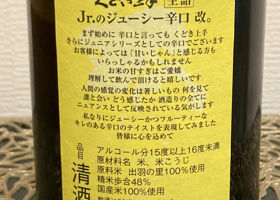 くどき上手 生詰
Jr.のジューシー辛口 改。
まず始めに 辛口と言っても くどき上手
さらにジュニアシリーズとしての辛口でございます
お客様によっては「甘いじゃん」と感じる方も
いらっしゃるかもしれません
お米の甘すぎはご愛嬌
理解して飲んで頂けると嬉しいです
人間の感覚の変化は著しいもの 何を見て
誰と会い どう感じたか 酒造りの全てに
ニュアンスとして反映されている気がします
私なりにジューシーかつフルーティーな
キレのある辛口のテイストを表現してみました
皆様に心を込めて
品目 清酒
アルコール分15度以上16度未満
原材料名 米、米こうじ
原料米 出羽の里100%使用
国産米100%使用
精米歩合48%